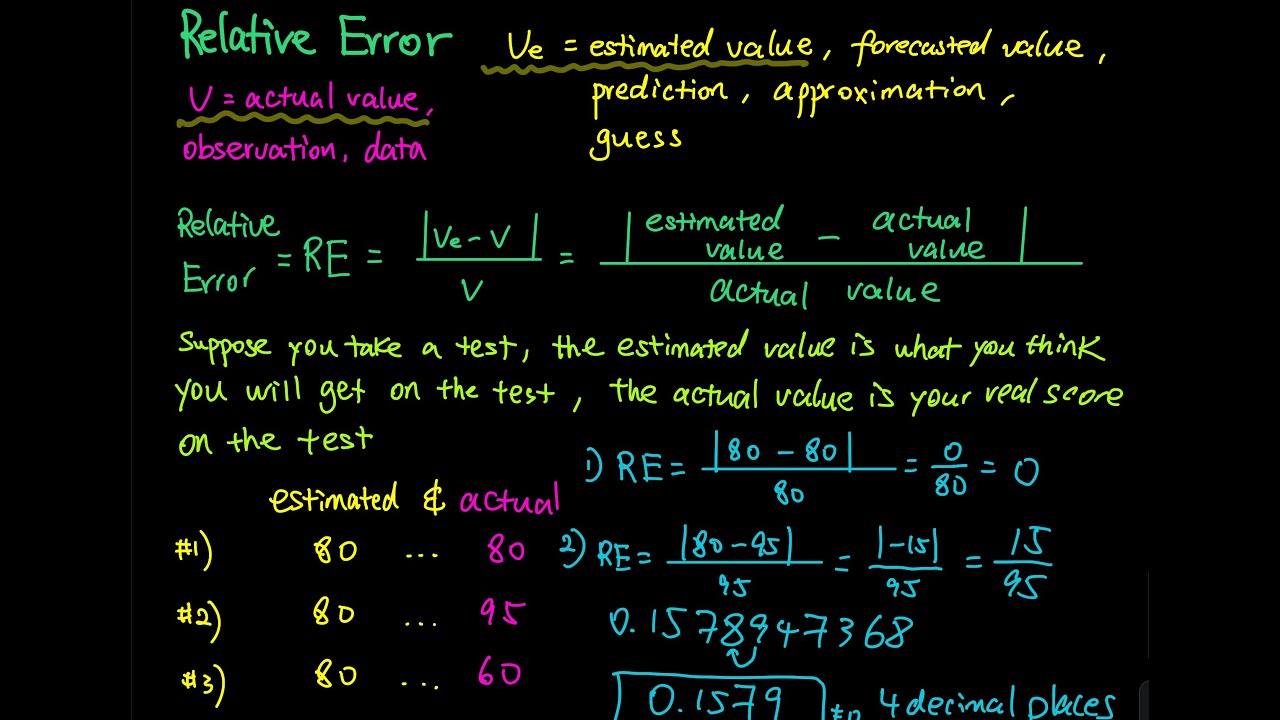 Relative Error
Ve = estimated value, forecasted value,
prediction, approximation,
guess
V = actual value,
observation, data
Relative Error = RE = |Ve - V| / V = |estimated value - actual value| / actual value
Suppose you take a test, the estimated value is what you think
you will get on the test, the actual value is your real score
on the test
estimated & actual
#1) 80 ... 80
#2) 80 ... 95
#3) 80 ... 60
1) RE = |80 - 80| / 80 = 0 / 80 = 0
2) RE = |80 - 95| / 95 = |-15| / 95 = 15 / 95
0.1578947368
0.1579 to 4 decimal places